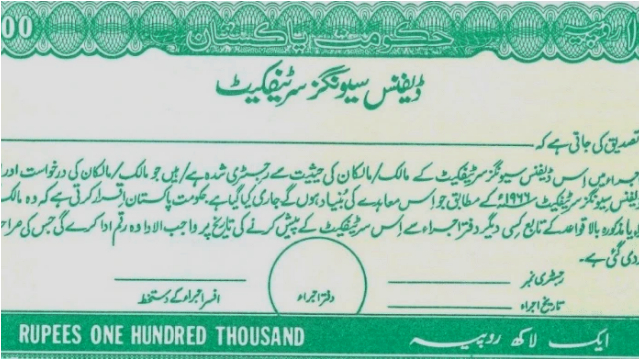 00
حکومت پاکستان
ڈیفنس سیونگز سرٹیفکیٹ
تصدیق کی جاتی ہے کہ
اجراء میں اِس ڈیفنس سیونگز سرٹیفکیٹ کے مالک/مالکان کی حیثیت سے رجسٹری شدہ ہے/ہیں جو مالک/مالکان کی درخواست اور
ڈیفنس سیونگز سرٹیفکیٹ ۱۹۶۶ء کے مطابق جو اِس معاہدے کی بُنیاد ہوں گے جاری کیا گیا ہے۔ حکومت پاکستان اِقرار کرتی ہے کہ وہ مالک
یا مذکورہ بالا قواعد کے تابع کسی دیگر دفتر اجراء سے اِس سرٹیفکیٹ کے پیش کرنے کی تاریخ پر واجب الادا وہ رقم ادا کرے گی جس کی صراحت
دی گئی ہے۔
رجسٹری نمبر
تاریخ اجراء
دفتر اجراء
افسر اجراء کے دستخط
RUPEES ONE HUNDRED THOUSAND
ایک لاکھ روپیہ